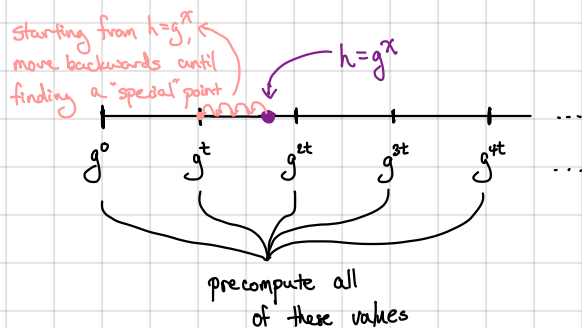 starting from h=g^x,
move backwards until
finding a "special" point
h=g^x
...
g^0 g^t g^2t g^3t g^4t ...
precompute all
of these values